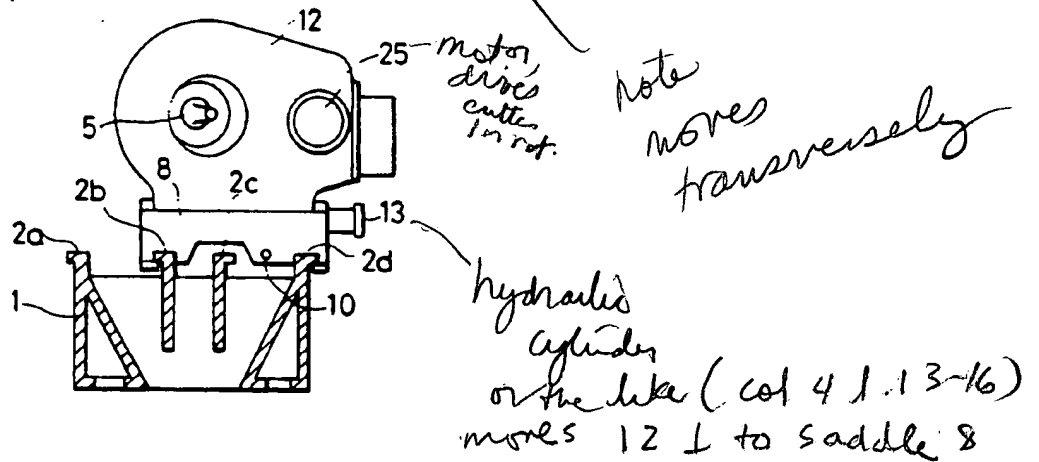 12
25
motor,
drives
cutter
in rot.
note
moves
transversely
5
8
2c
2b
13
2a
2d
1
10
hydraulic
cylinder
or the like (col 4 l.13-16)
moves 12 ⊥ to saddle 8